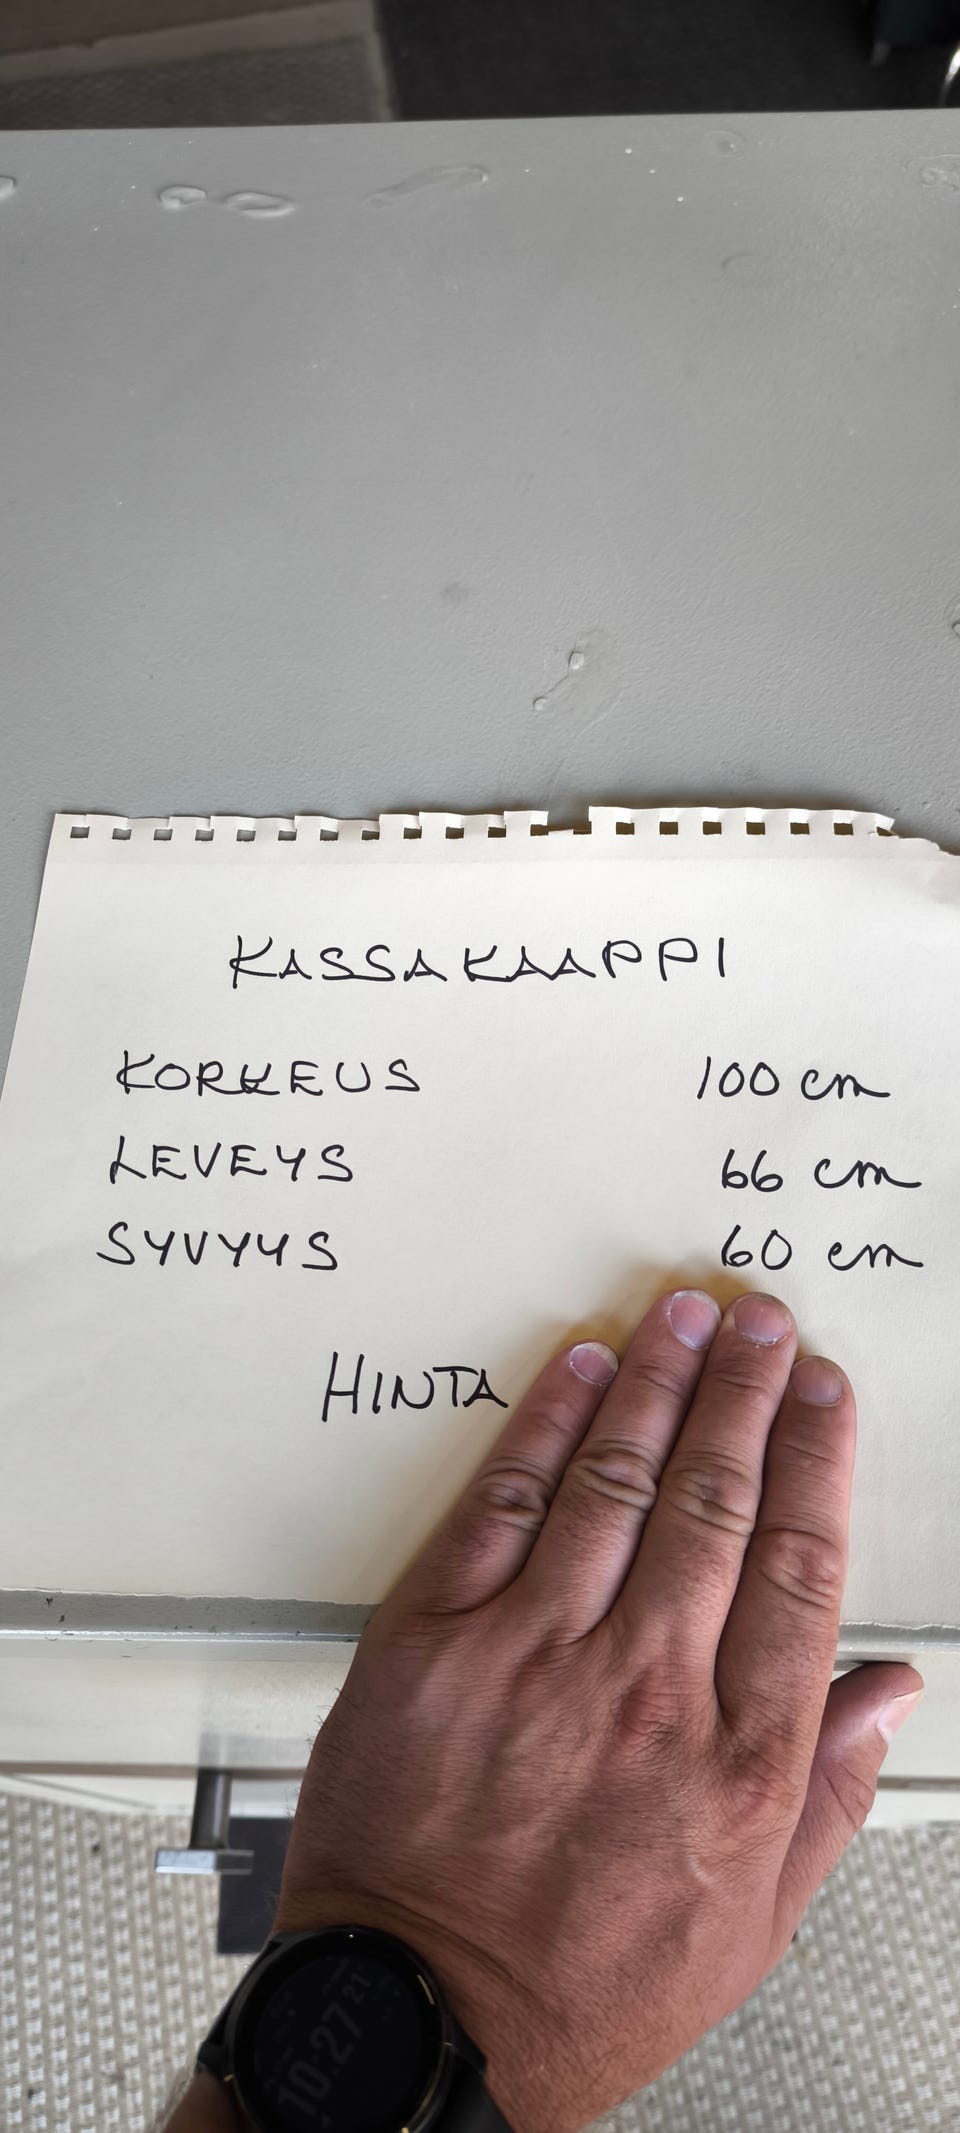 KASSAKAAPPI
KORKEUS 100 cm
LEVEYS 66 cm
SYVYYS 60 cm
HINTA
10:27 21